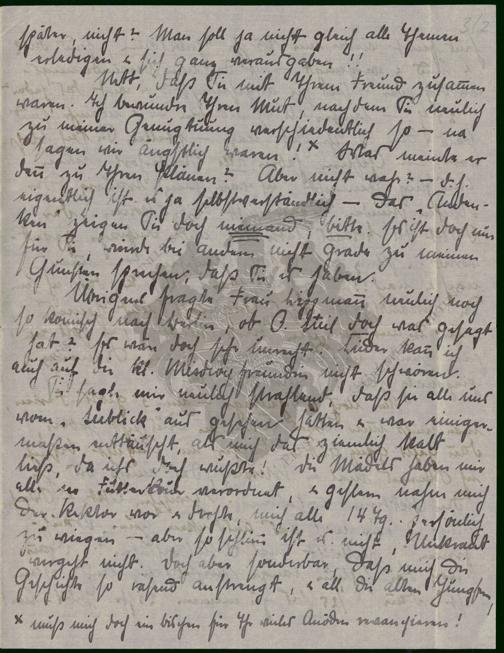 3/2
später, nicht? Man soll ja nicht gleich alle Themen
erledigen & sich ganz verausgaben!!
Nett, daß Sie mit Ihrem Freund zusammen
waren. Ich bewundre Ihren Mut, nachdem Sie neulich
zu meiner Genugtuung verschiedentlich so — na
sagen wir ängstlich waren!ˣ Was meinte er
denn zu Ihren Aber nicht wahr? — d.h.
eigentlich ist es ja selbstverständlich — das "Anden-
ken" zeigen Sie doch niemand, bitte. Es ist doch nur
für Sie, würde bei andern nicht grade zu meinen
Gunsten sprechen, daß Sie es haben.
Übrigens fragte Frau neulich noch
so komisch nach Berlin, ob O. doch was gesagt
hat? Es wär doch sehr unrecht. Leider kann ich
auch auf die kl. nicht schwören.
Sie sagte mir neulich strahlend, daß sie alle uns
vom "Seeblick" aus gesehen hätten & war einiger-
maßen enttäuscht, als mich das ziemlich kalt
ließ, da ich's doch wußte! Die Mädels haben mir
alle ne Futterkur verordnet, & gestern nahm mich
der Rektor vor & drohte, mich alle 14 Tg. persönlich
zu wiegen — aber so schlimm ist es nicht, Unkraut
vergeht nicht. Doch aber sonderbar, daß mich die
Geschichte so rasend anstrengt, & all die alten Jungfern,
x muß mich doch ein bißchen für Ihr vieles Anöden revanchieren!